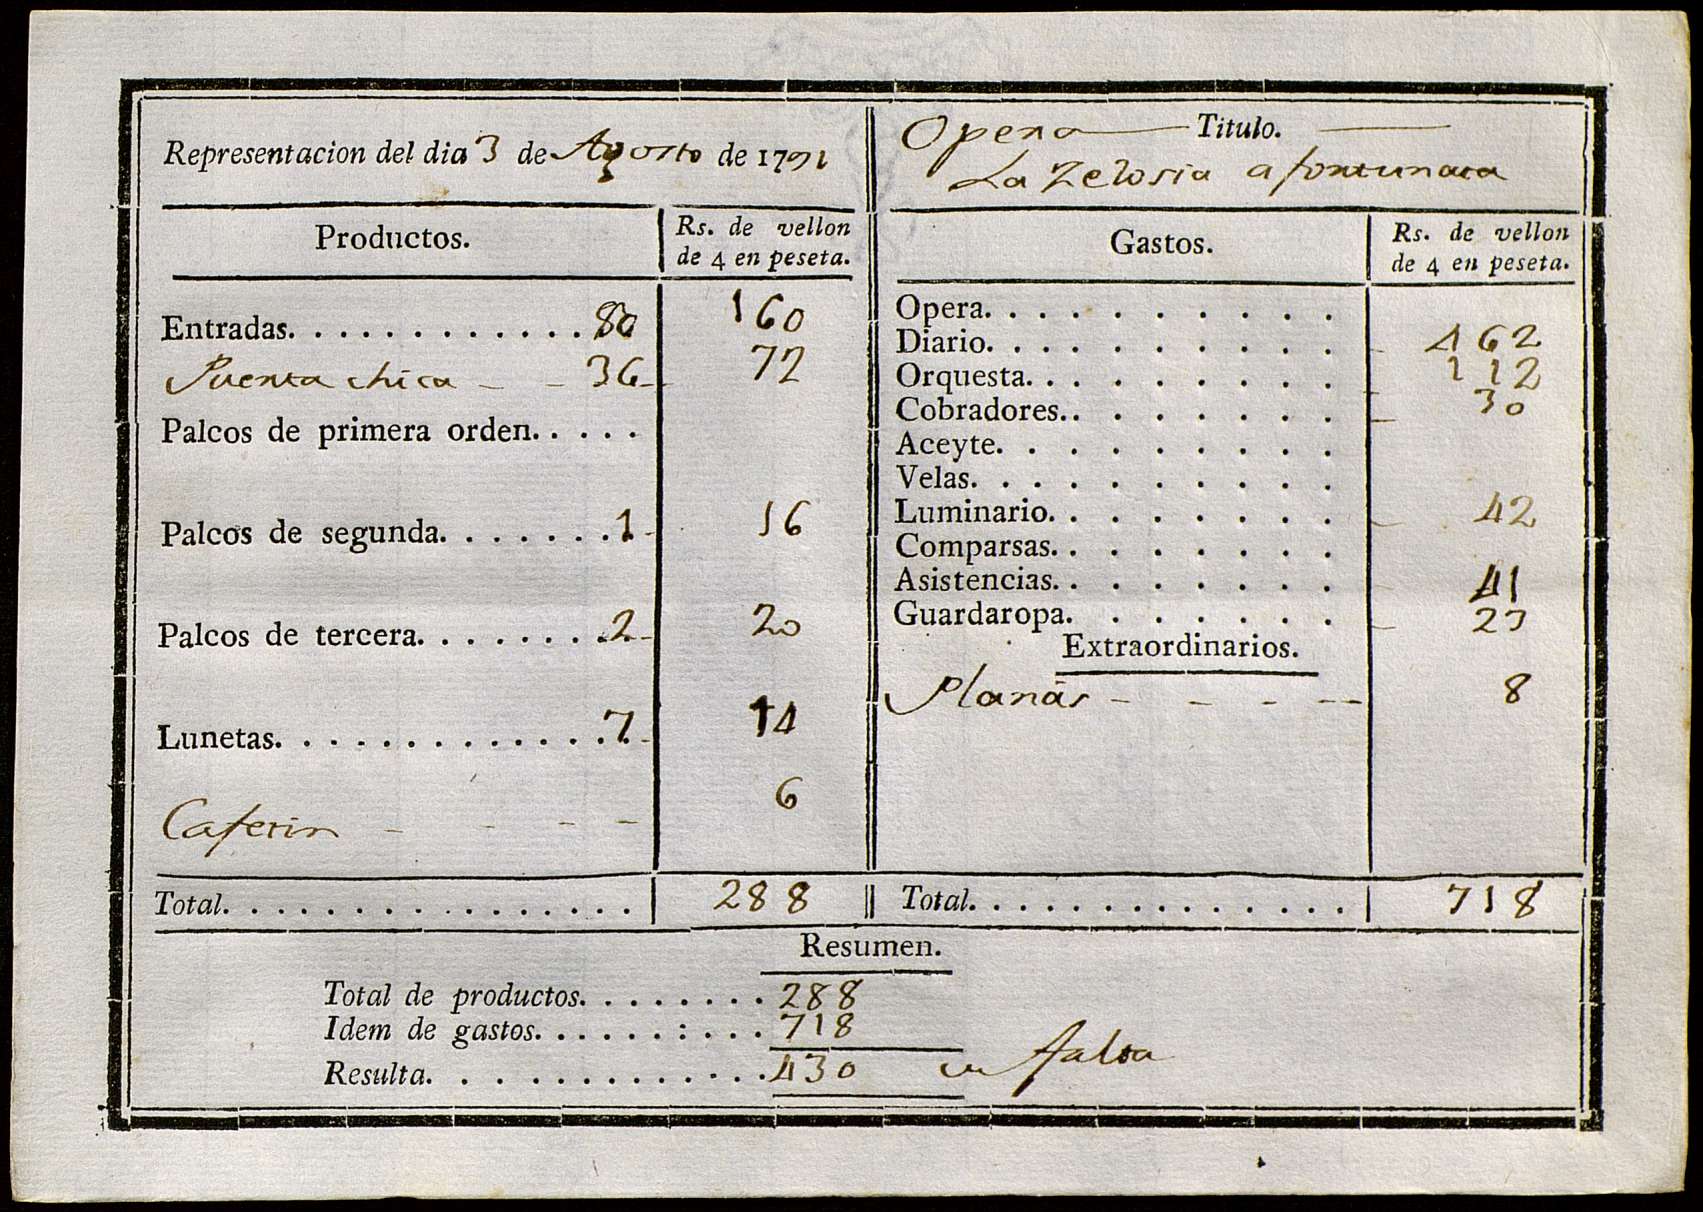 Representacion del dia 3 de Agosto de 1791
Productos.
Rs. de vellon
de 4 en peseta.
Entradas. . . . . . . . . . . . 80 160
Puerta chica - - 36 - 72
Palcos de primera orden. . . . .
Palcos de segunda. . . . . . . 1 - 16
Palcos de tercera. . . . . . . . 2 - 20
Lunetas. . . . . . . . . . . . . 7 - 14
Cafetin - - - - 6
Total. . . . . . . . . . . . . . . . 288
Opera — Titulo. —
La Zelosia afortunata
Gastos.
Rs. de vellon
de 4 en peseta.
Opera. . . . . . . . . .
Diario. . . . . . . . . . - 462
Orquesta. . . . . . . . . - 112
Cobradores. . . . . . . . - 30
Aceyte. . . . . . . . .
Velas. . . . . . . . . .
Luminario. . . . . . . . - 42
Comparsas. . . . . . . .
Asistencias. . . . . . . . - 41
Guardaropa. . . . . . . - 23
Extraordinarios.
Planàs - - - - - 8
Total. . . . . . . . . . . . . . 718
Resumen.
Total de productos. . . . . . . . 288
Idem de gastos. . . . . . : . . . 718
Resulta. . . . . . . . . . . . 430 en falta